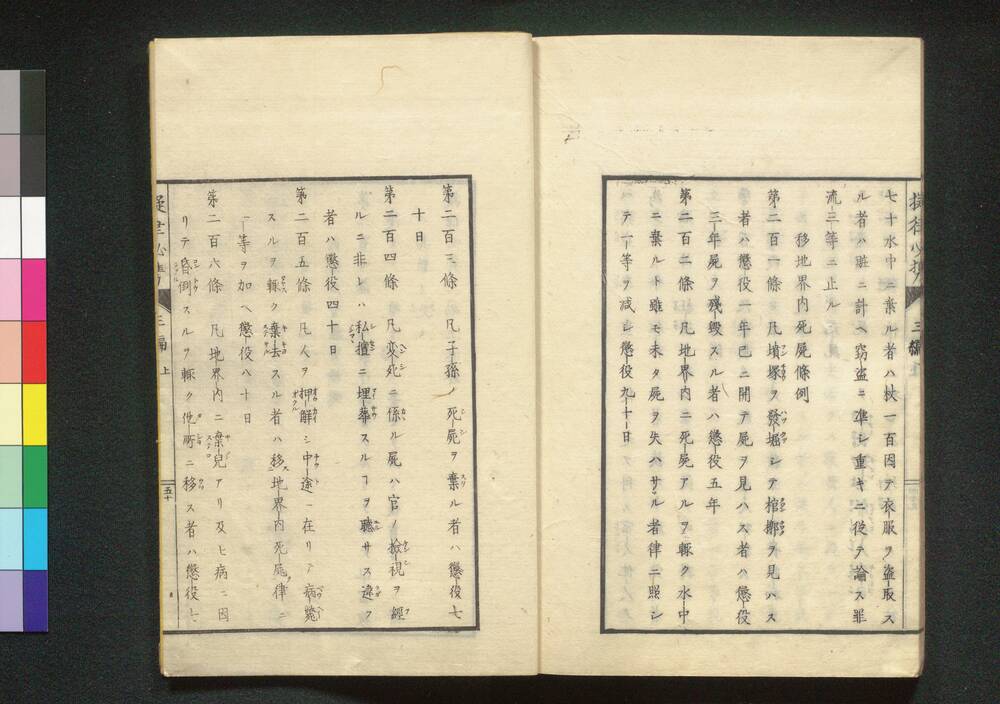 七十水中ニ棄ル者ハ杖一百因テ衣服ヲ盗取ス
ル者ハ贓ニ計ヘ窃盗ニ準シ重キニ従テ論ス罪
流三等ニ止ル
移地界内死屍條例
第二百一條 凡墳塚ヲ發掘シテ棺槨ヲ見ハス
者ハ懲役一年已ニ開テ屍ヲ見ハス者ハ懲役
三年屍ヲ殘毀スル者ハ懲役五年
第二百二條 凡地界内ニ死屍アルヲ輙ク水中
ニ棄ルト雖モ未タ屍ヲ失ハサル者律ニ照シ
テ一等ヲ減シ懲役九十日
三編 上
第二百三條 凡子孫ノ死屍ヲ棄ル者ハ懲役七
十日
第二百四條 凡変死ニ係ル屍ハ官ノ撿視ヲ經
ルニ非レハ私擅ニ埋葬スルヿヲ聴サス違フ
者ハ懲役四十日
第二百五條 凡人ヲ押解シ中途ニ在リテ病斃
スルヲ輙ク棄去スル者ハ移地界内死屍律ニ
一等ヲ加ヘ懲役八十日
第二百六條 凡地界内ニ棄兒アリ及ヒ病ニ因
リテ昏倒スルヲ輙ク他所ニ移ス者ハ懲役七
三編 上
五十